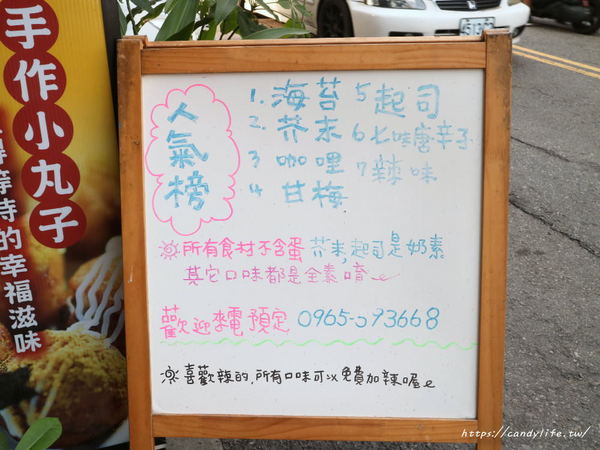 手作小丸子
等待的幸福滋味
人氣榜
1. 海苔
2. 芥末
3 咖哩
4 甘梅
5 起司
6 七味唐辛子
7 辣味
※所有食材不含蛋 芥末,起司是奶素
其它口味都是全素唷
歡迎來電預定 0965-593668
※喜歡辣的,所有口味可以免費加辣喔
https://candylife.tw/